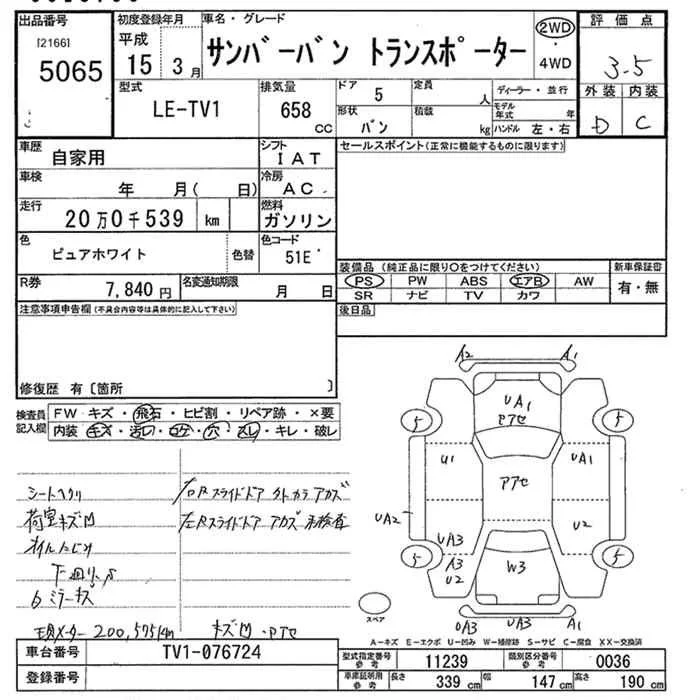 出品番号
[2166]
5065
初度登録年月
平成
15 3月
車名・グレード
サンバーバン トランスポーター
2WD
・
4WD
評価点
3.5
外装 内装
D C
型式
LE-TV1
排気量
658
CC
ドア
5
定員
人
形状
バン
積載
kg
ディーラー・並行
モデル年式 年
ハンドル 左・右
車歴
自家用
シフト
IAT
車検
年 月( 日)
冷房
AC
走行
20万0千539 km
燃料
ガソリン
色
ピュアホワイト
色替
色コード
51E
R券
7,840円
名変通知期限
月 日
セールスポイント(正常に機能するものに限ります)
装備品(純正品に限り○をつけてください)
PS PW ABS エアB AW
SR ナビ TV カワ
新車保証書
有・無
後日品
注意事項申告欄(不具合内容等は具体的に記入して下さい)
修復歴 有〔箇所 〕
検査員
記入欄
FW キズ・飛石・ヒビ割・リペア跡・×要
内装 キズ・汚レ・コゲ・穴・スレ・キレ・破レ
シートヘタリ
荷室キズ凹
オイルにじみ
下廻りS
ミラーキズ
現メーター 200,575km
右Rスライドドア 外カラアカズ
左Rスライドドア アカズ 未検査
キズ凹・Pアセ
A2 A1
UA1
Pアセ
5 5
U1 Pアセ UA1
UA2
UA3 U2
A3
U2
W3
5 5
UA3 UA3 A1
スペア
A-キズ E-エクボ U-凹み W-補修跡 S-サビ C-腐食 XX-交換済
車台番号
TV1-076724
登録番号
型式指定番号
参考
11239
類別区分番号
参考
0036
車庫証明用
参考
長さ 339 cm
幅 147 cm
高さ 190 cm